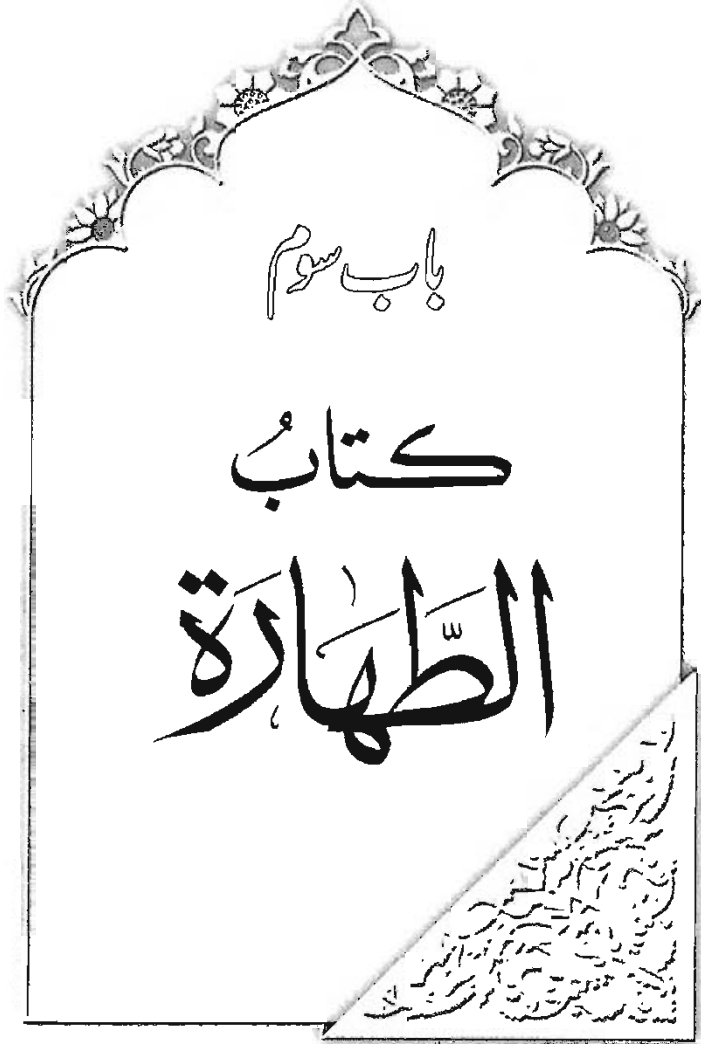 باب سوم
کتابُ
الطَّهارَة